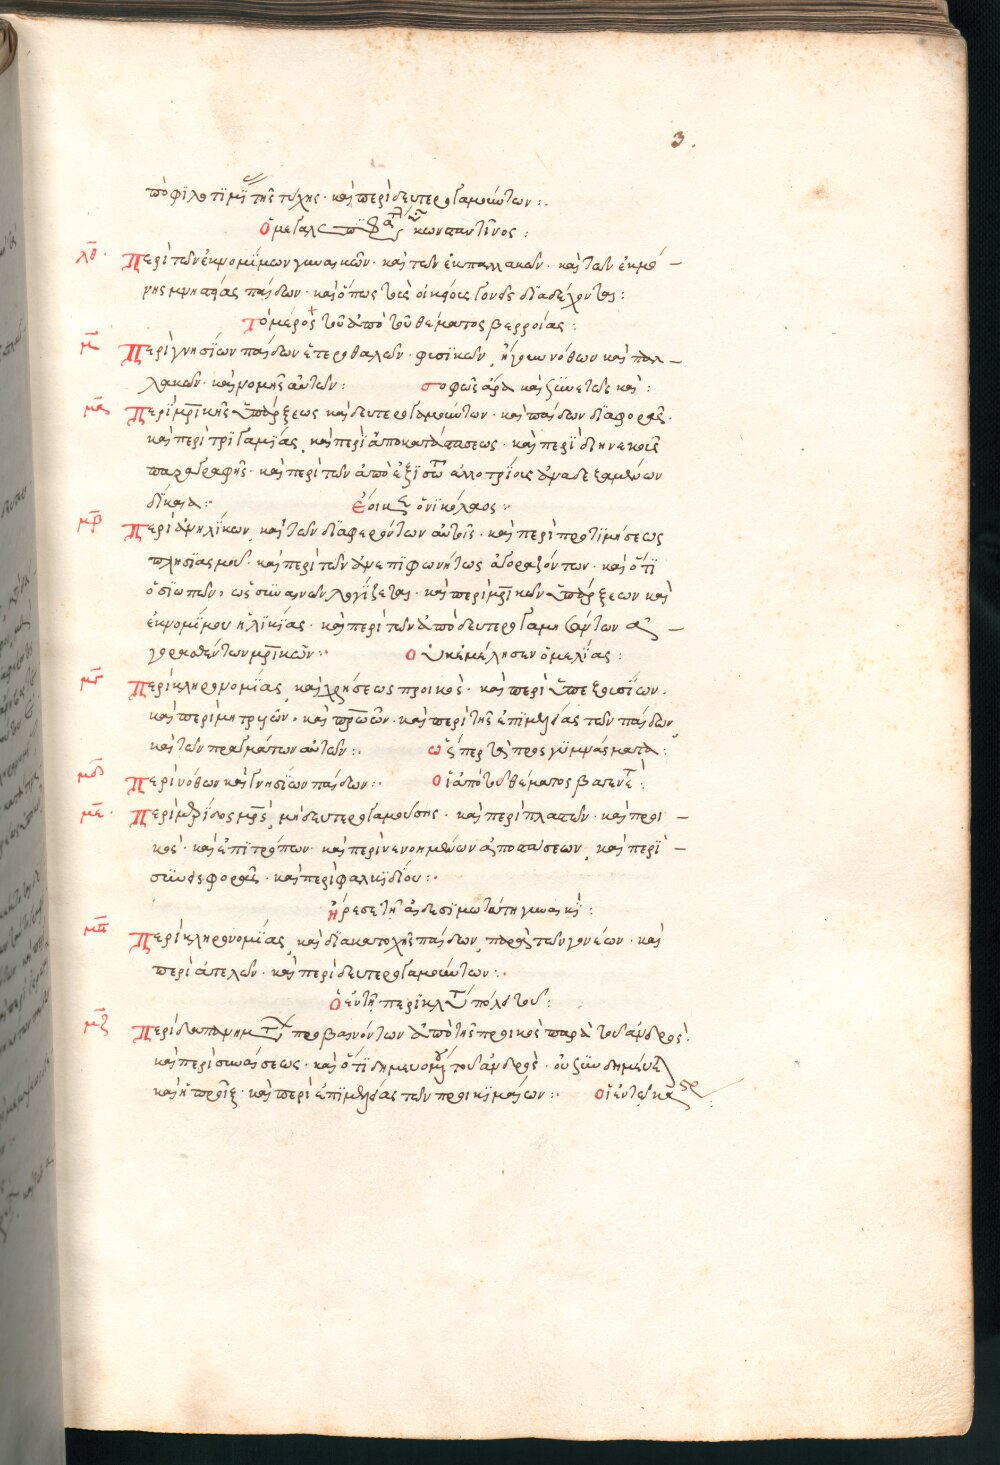 3.
φιλοτιμι τῆς τύχης · καὶ περὶ δευτερογαμούντων :.
Ὁ μεγαλ κωνσταντῖνος :
λθ · Περὶ τῶν ἐκ νομίμων γυναικῶν · καὶ τῶν ἐκ παλλακῶν · καὶ τῶν ἐκ μό –
νης μνηστείας παίδων · καὶ ὅπως τοὺς οἰκείους γονεῖς διαδέχονται :
Τὸ μέρος τοῦ ἀπὸ τοῦ θέματος βερροίας :
μ Περὶ γνησίων παίδων ἑτεροθαλῶν · φυσικῶν, ἤγουν νόθων καὶ παλ –
λακῶν · καὶ νομῆς αὐτῶν : σοφῶς ἄρα καὶ ξυνετῶς καὶ :
μα Περὶ μρικῆς ὑπάρξεως καὶ δευτερογαμούντων · καὶ παίδων διαφορᾶς ·
καὶ περὶ τριγαμίας, καὶ περὶ ἀποκαταστάσεως · καὶ περὶ διηνεκοῦς
παραγραφῆς · καὶ περὶ τῶν ἀπὸ ἐξισω ἀλλοτρίοις ἀναδεξαμένων
δίκαια : Ἔοικ ὁ νικόλαος :
μβ Περὶ ἀνηλίκων, καὶ τῶν διαφερόντων αὐτοῖς · καὶ περὶ προτιμήσεως
πλησιασμοῦ · καὶ περὶ τῶν ἀνεπιφωνήτως ἀγοραζόντων · καὶ ὅτι
ὁ σιωπῶν, ὡς συναινῶν λογίζεται · καὶ περὶ μρικῶν ὑπάρξεων καὶ
ἐκ νομίμου ἡλικίας · καὶ περὶ τῶν ἀπὸ δευτερογαμησάντων ἀ –
γορασθέντων μρικῶν : Οὐκ ἐμέλησεν ὁ μελίας :
μγ Περὶ κληρονομίας, καὶ χρήσεως προικός · καὶ περὶ ὑπεξουσίων ·
καὶ περὶ μητρυιῶν · καὶ πρωῶν · καὶ περὶ τῆς ἐπιμελείας τῶν παίδων,
καὶ τῶν πραγμάτων αὐτῶν : ὥσπερ τὰ πρὸς γυμνάσματα :
μδ Περὶ νόθων καὶ γνησίων παίδων : Οἱ ἀπὸ τοῦ θέματος
με · Περὶ μερίδος μρς μὴ δευτερογαμούσης · καὶ περὶ πλατῶν · καὶ προι –
κός · καὶ ἐπιτρόπων · καὶ περὶ νενοημένων ἀποστάσεων, καὶ περὶ –
συνεισφορᾶς · καὶ περὶ φαλκιδίου :
ἤρεσε τῇ αἰδεσιμωτάτῃ γυναικὶ :
Περὶ κληρονομίας, καὶ διακατοχῆς παίδων, πρὸς τῶν γονέων · καὶ
περὶ ἀτελῶν · καὶ περὶ δευτερογαμούντων :
Ὁ ἐν τῇ περικλ :
μζ Περὶ προβαινόντων ἀπὸ τῆς προικὸς παρὰ τοῦ ἀνδρὸς :
καὶ περὶ συναινέσεως · καὶ ὅτι δημευομ τοῦ ἀνδρὸς · οὐ ξυνδημεύε
καὶ ἡ προῖξ · καὶ περὶ ἐπιμελείας τῶν προικιμαίων : Οἱ ἐν τῷ